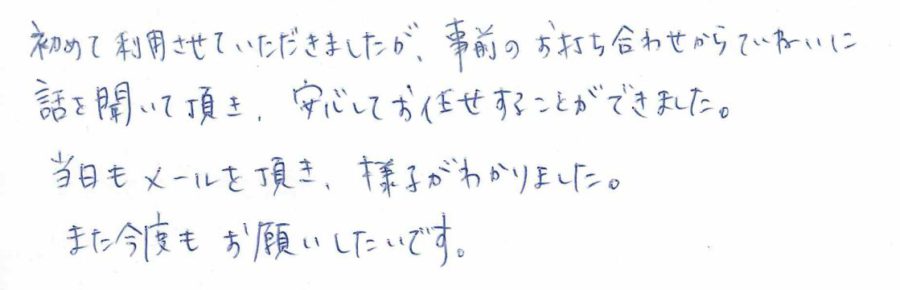 初めて利用させていただきましたが、事前のお打ち合わせからていねいに
話を聞いて頂き、安心してお任せすることができました。
当日もメールを頂き、様子がわかりました。
また今度もお願いしたいです。